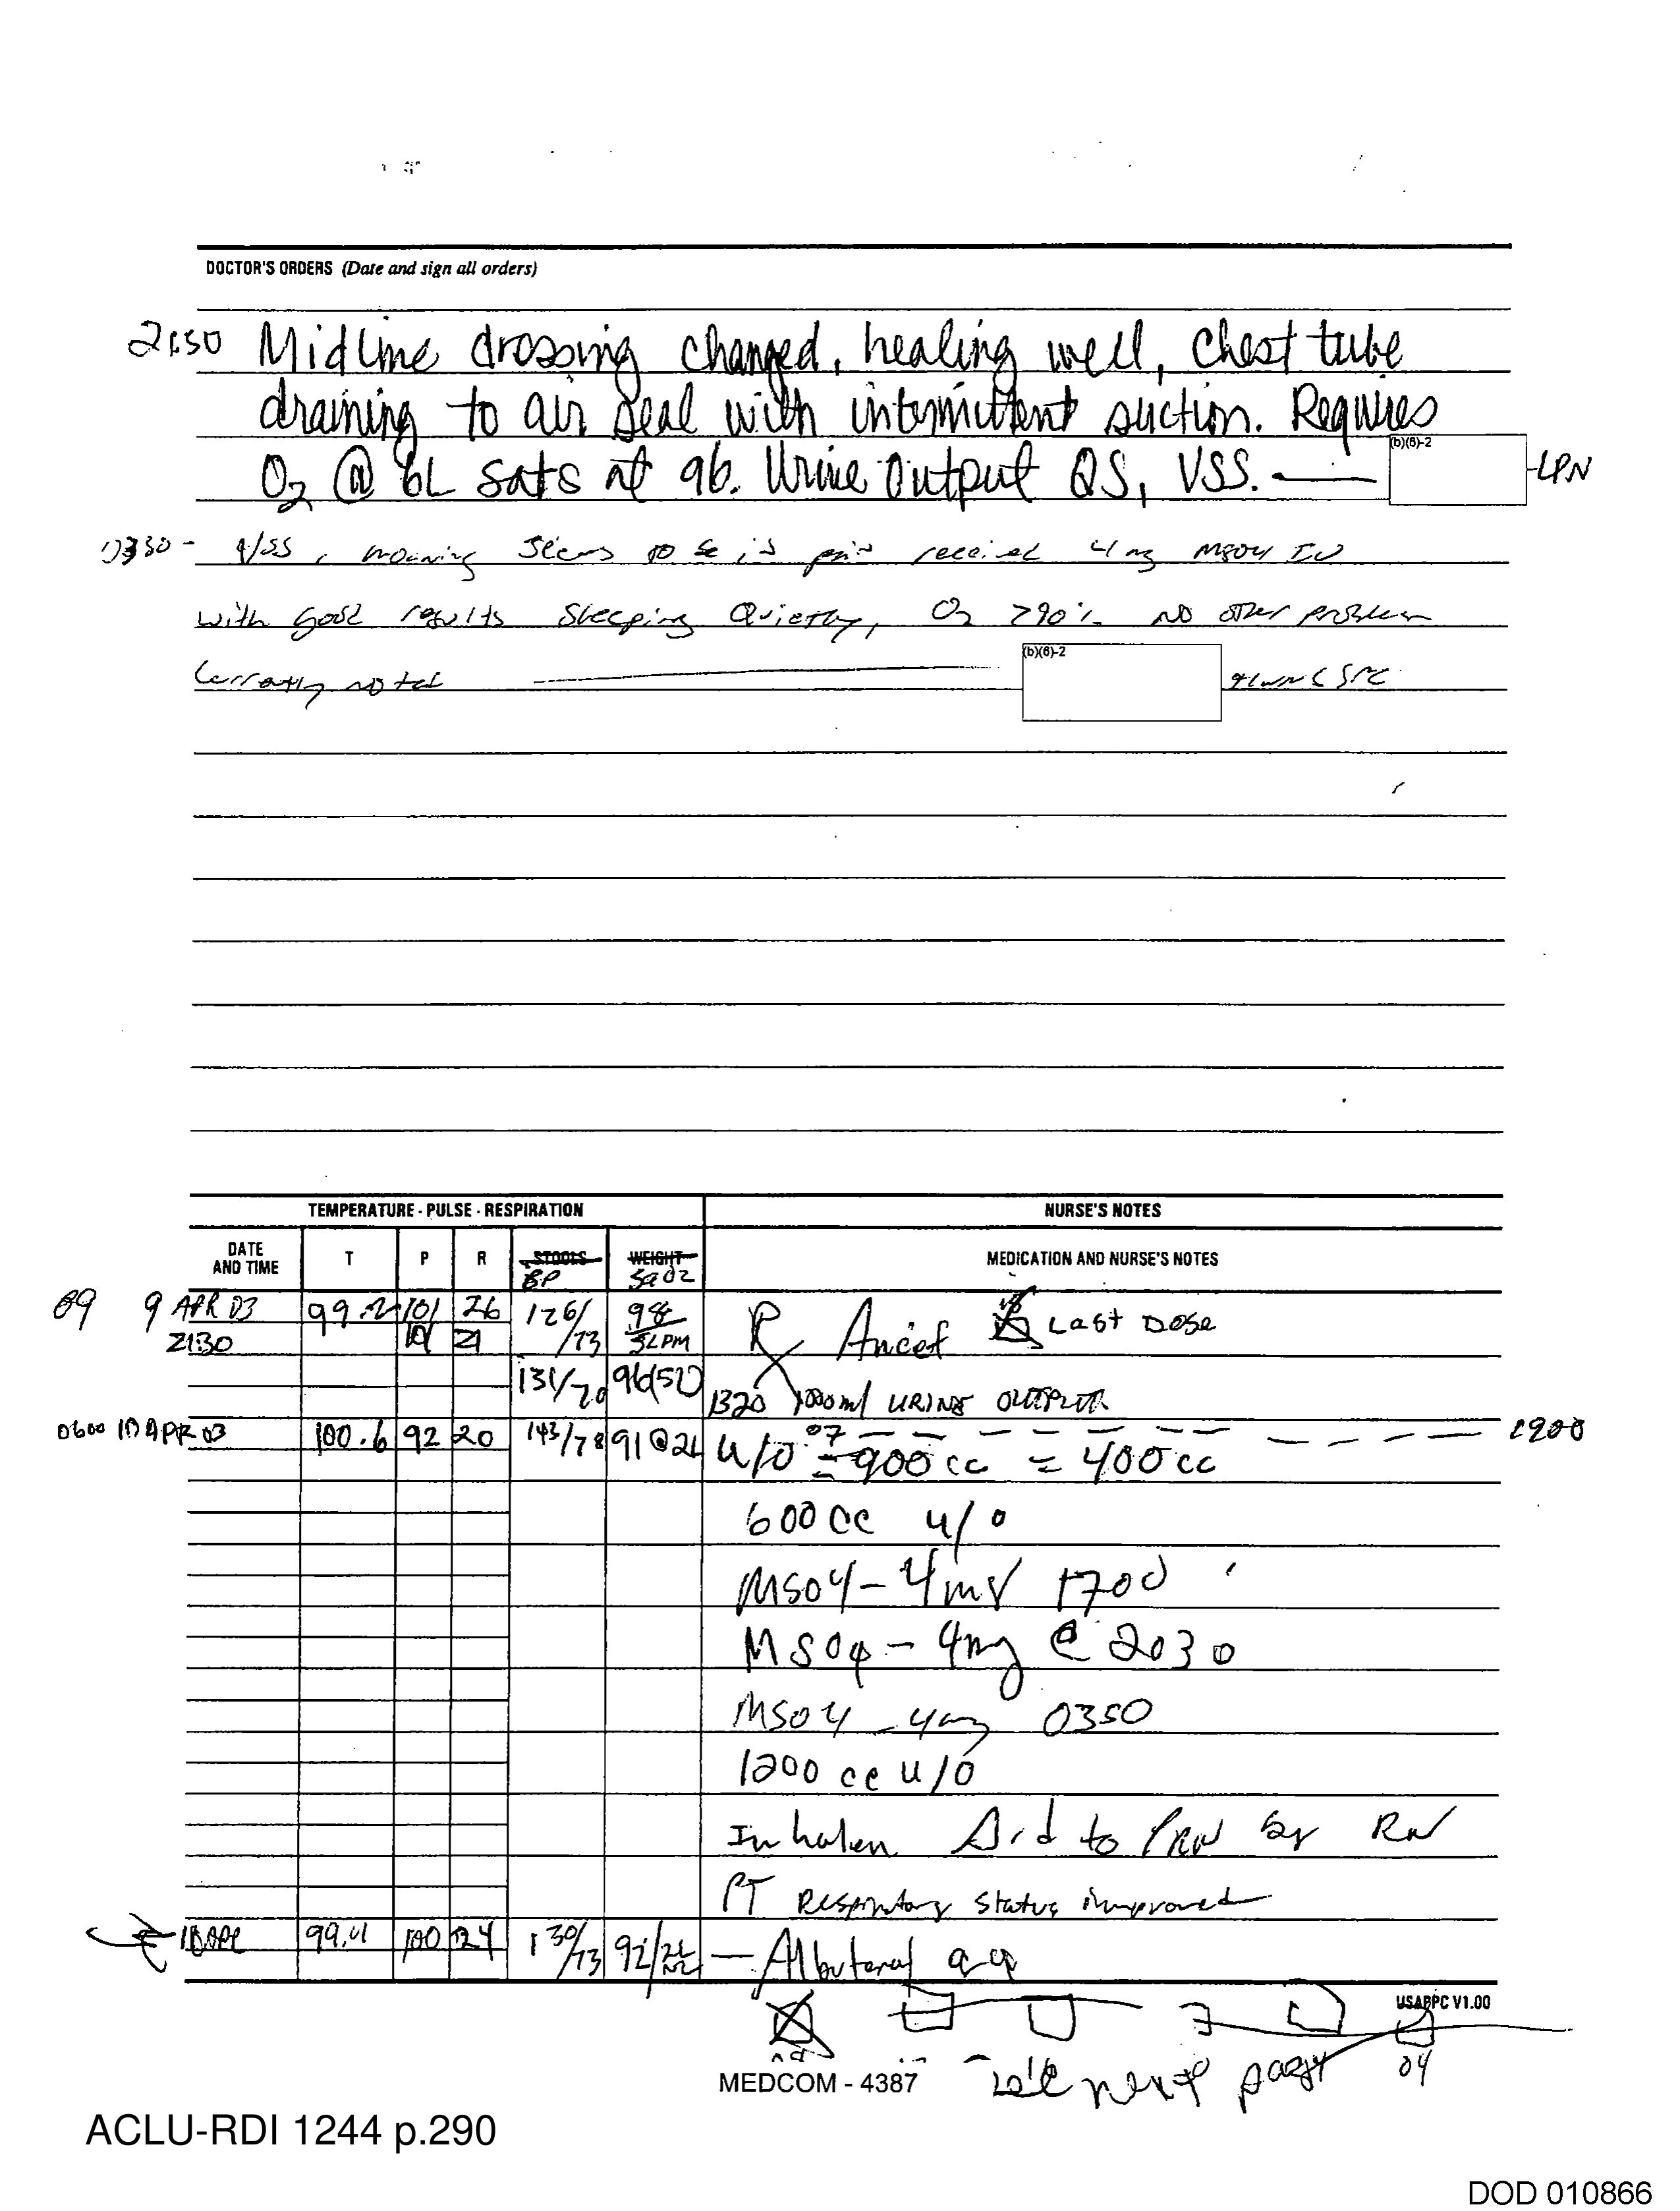 DOCTOR'S ORDERS (Date and sign all orders)
2150 Midline dressing changed, healing well, Chest tube
draining to air seal with intermittent suction. Requires
O2 @ 6L sats at 96. Urine Output QS, VSS. —
(b)(6)-2
LPN
VSS, moaning seems to be in pain received 4 mg MSO4 IV
with good results sleeping Quietly, O2 >90% NO other problem
currently noted
(b)(6)-2
91WM6 SPC
TEMPERATURE - PULSE - RESPIRATION
NURSE'S NOTES
DATE AND TIME
T
P
R
STOOLS
BP
WEIGHT
SaO2
MEDICATION AND NURSE'S NOTES
09 9 APR 03 99.2 101 26 126/73 98 5LPM Rx Ancef Last Dose
2130 101 21
131/70 96(5L) 1320 1000ml URINE OUTPUT
0600 10 APR 03 100.6 92 20 143/78 91@2L U/O 07 = 900cc = 400cc 1900
600cc u/o
MSO4 - 4mg 1700
MSO4 - 4mg @ 2030
MSO4 - 4mg 0350
1200 cc u/o
Inhaler to PRN by RN
PT Respiratory status improved
10 APR 99.4 100 24 130/73 92/2L — Albuterol q4
USAPPC V1.00
04
next page
MEDCOM - 4387
ACLU-RDI 1244 p.290
DOD 010866